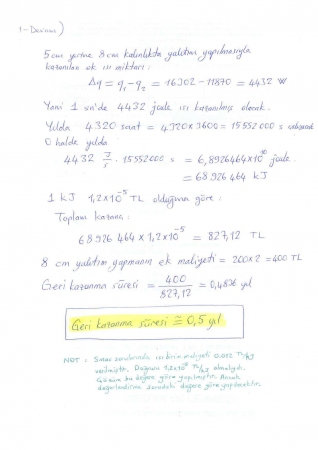 1-Devamı)
5 cm yerine 8 cm kalınlıkta yalıtım yapılmasıyla
kazanılan ek ısı miktarı:
Δq = q₁ - q₂ = 16302 - 11870 = 4432 W
Yani 1 sn'de 4432 joule ısı kazanılmış olacak.
Yılda 4320 saat = 4320x3600 = 15552000 s
O halde yılda
4432 J/s · 15552000 s = 6,8926464x10¹⁰ joule
= 68 926 464 kJ
1 kJ 1,2x10⁻⁵ TL olduğuna göre:
Toplam kazanç:
68926464 x 1,2x10⁻⁵ = 827,12 TL
8 cm yalıtım yapmanın ek maliyeti = 200x2 = 400 TL
Geri kazanma süresi = 400/827,12 = 0,4836 yıl
Geri kazanma süresi ≅ 0,5 yıl
NOT: Sınav sorularında ısı birim maliyeti 0.012 TL/kJ
verilmiştir. Doğrusu 1,2x10⁻⁵ TL/kJ olmalıydı.
Çözüm bu değere göre yapılmıştır. Ancak
değerlendirme sorudaki değere göre yapılacaktır.